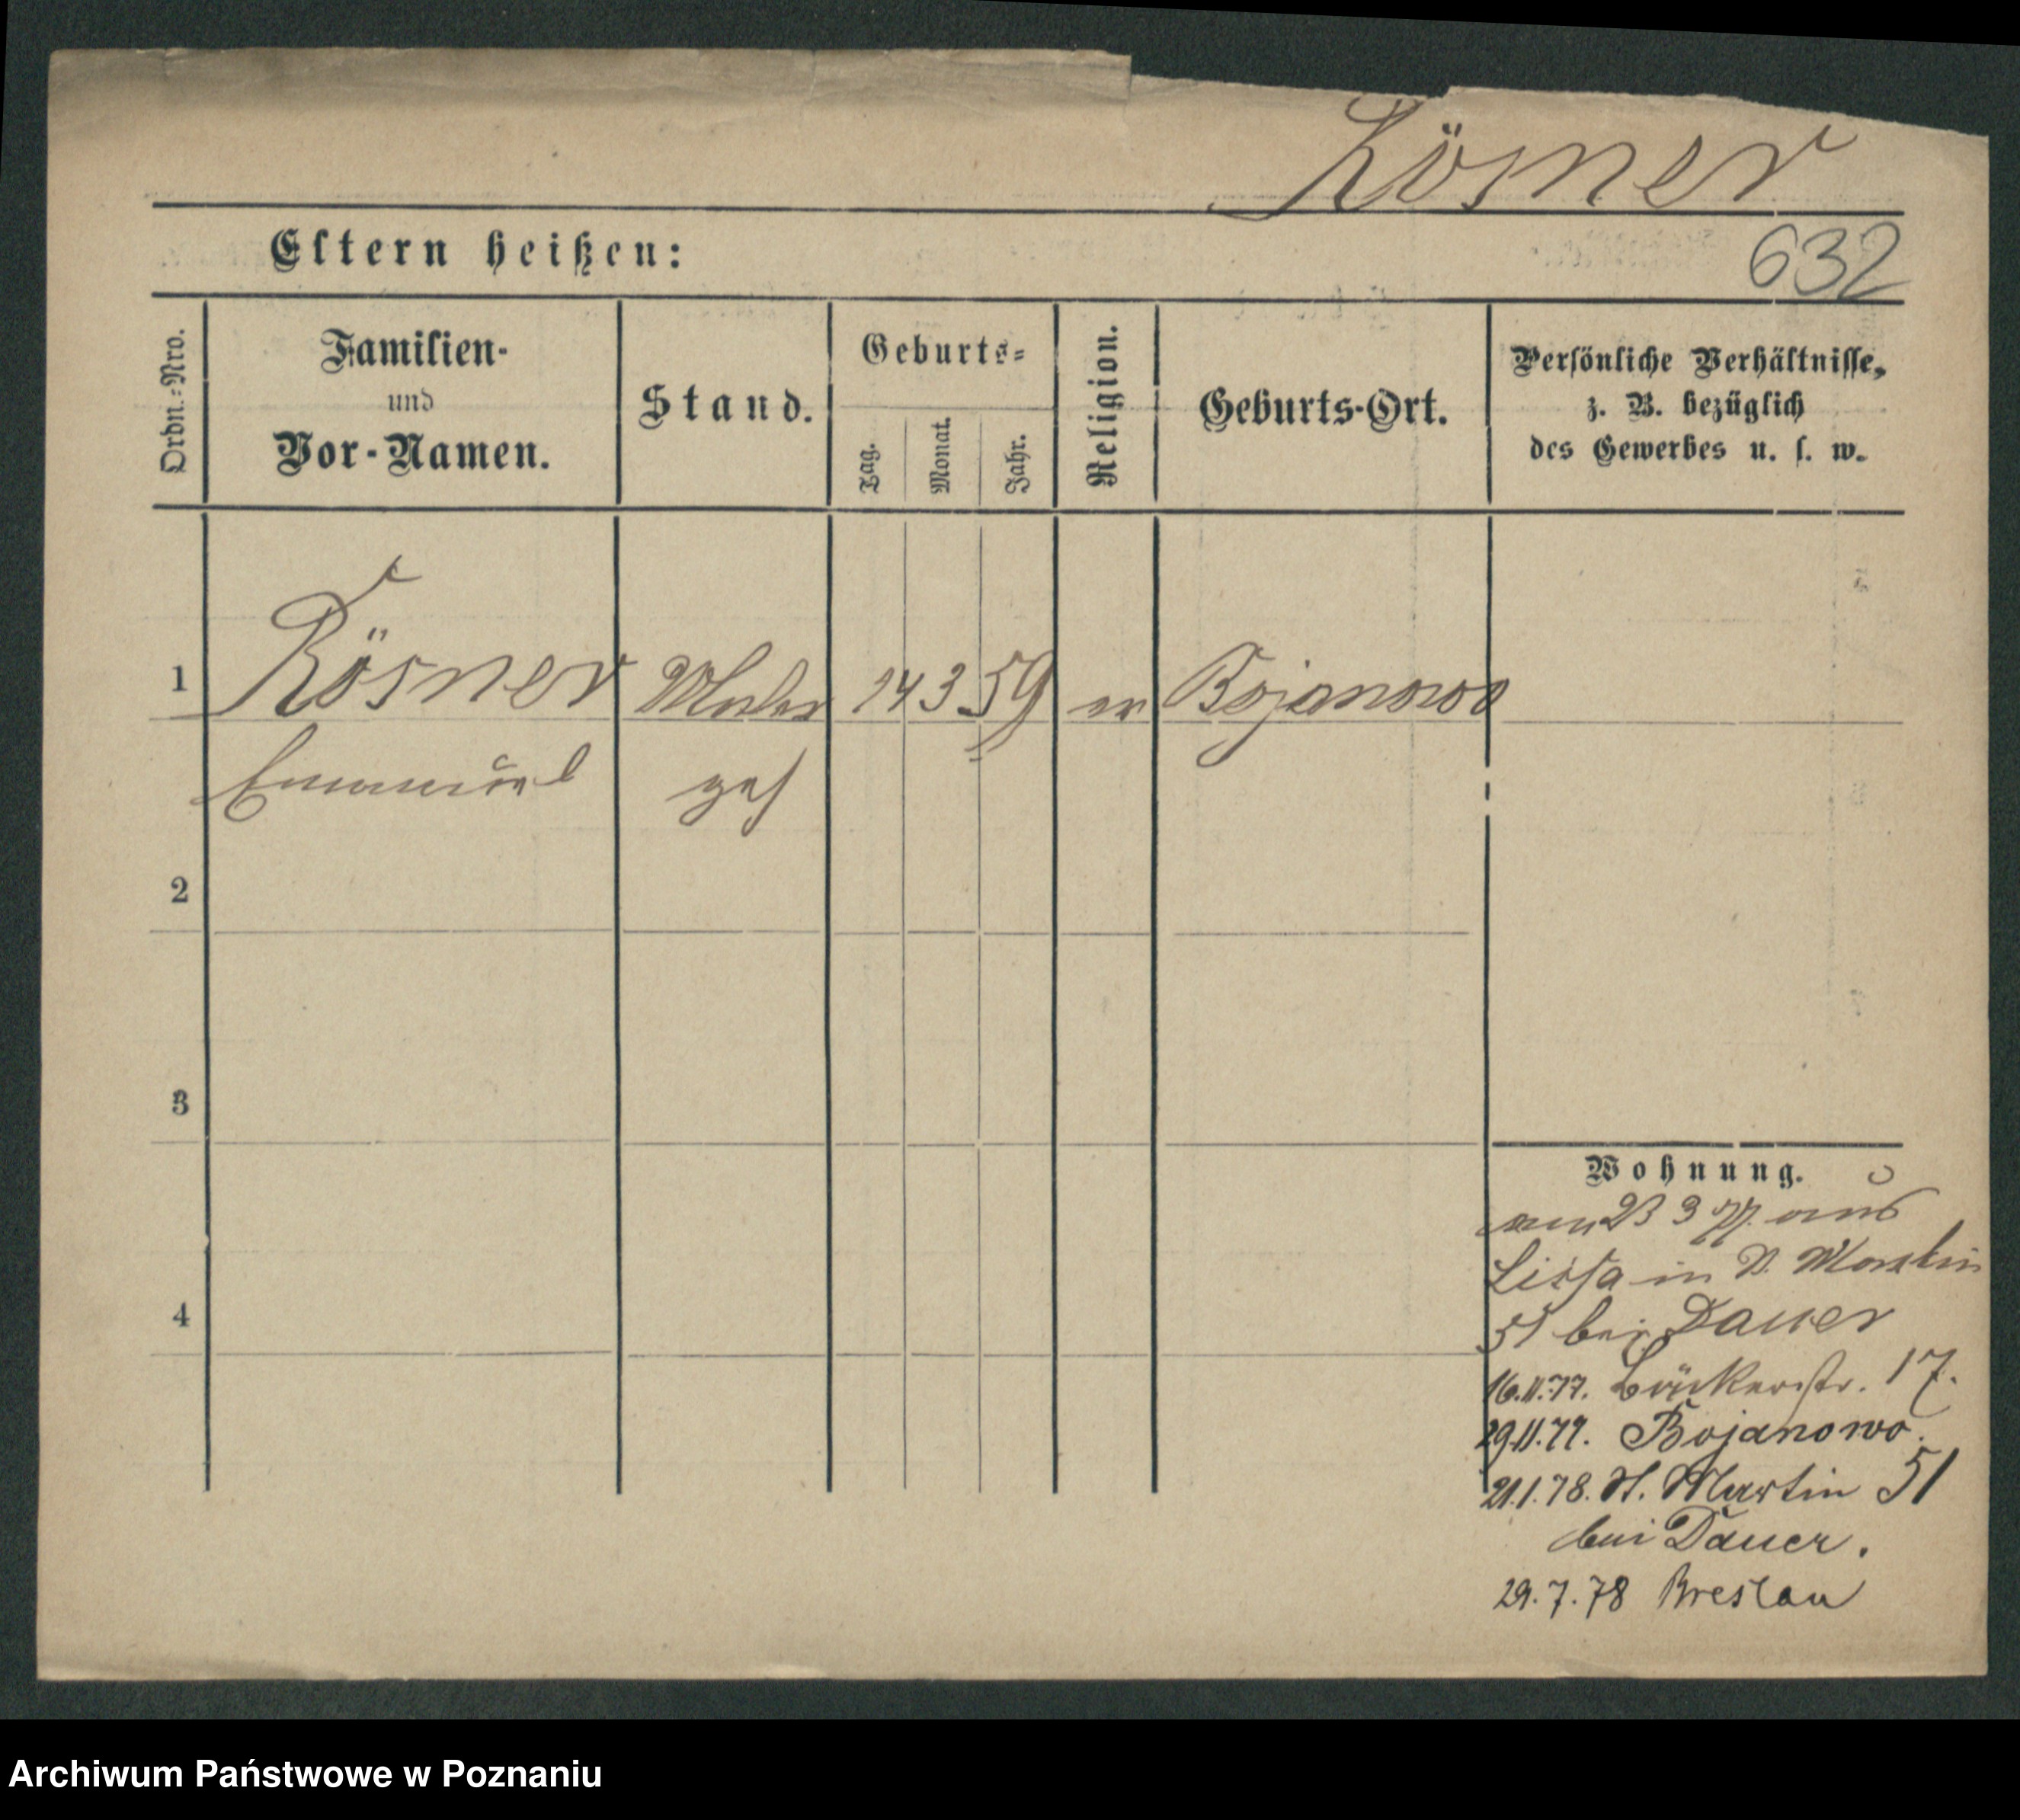 Rösner
Eltern heißen:
632
Ordn.-Nro.
Familien-
und
Vor-Namen.
Stand.
Geburts-
Tag.
Monat.
Jahr.
Religion.
Geburts-Ort.
Persönliche Verhältnisse,
z. B. bezüglich
des Gewerbes u. s. w.
1 Rösner Maler 14 3 59 ev Bojanowo
Emanuel geh
2
3
4
Wohnung.
am 23 3 77. aus
Lissa in St. Martin
51 bei Dauer
16.11.77. Bäckerstr. 17.
29.11.77. Bojanowo.
21.1.78. St. Martin 51
bei Dauer.
29.7.78 Breslau
Archiwum Państwowe w Poznaniu